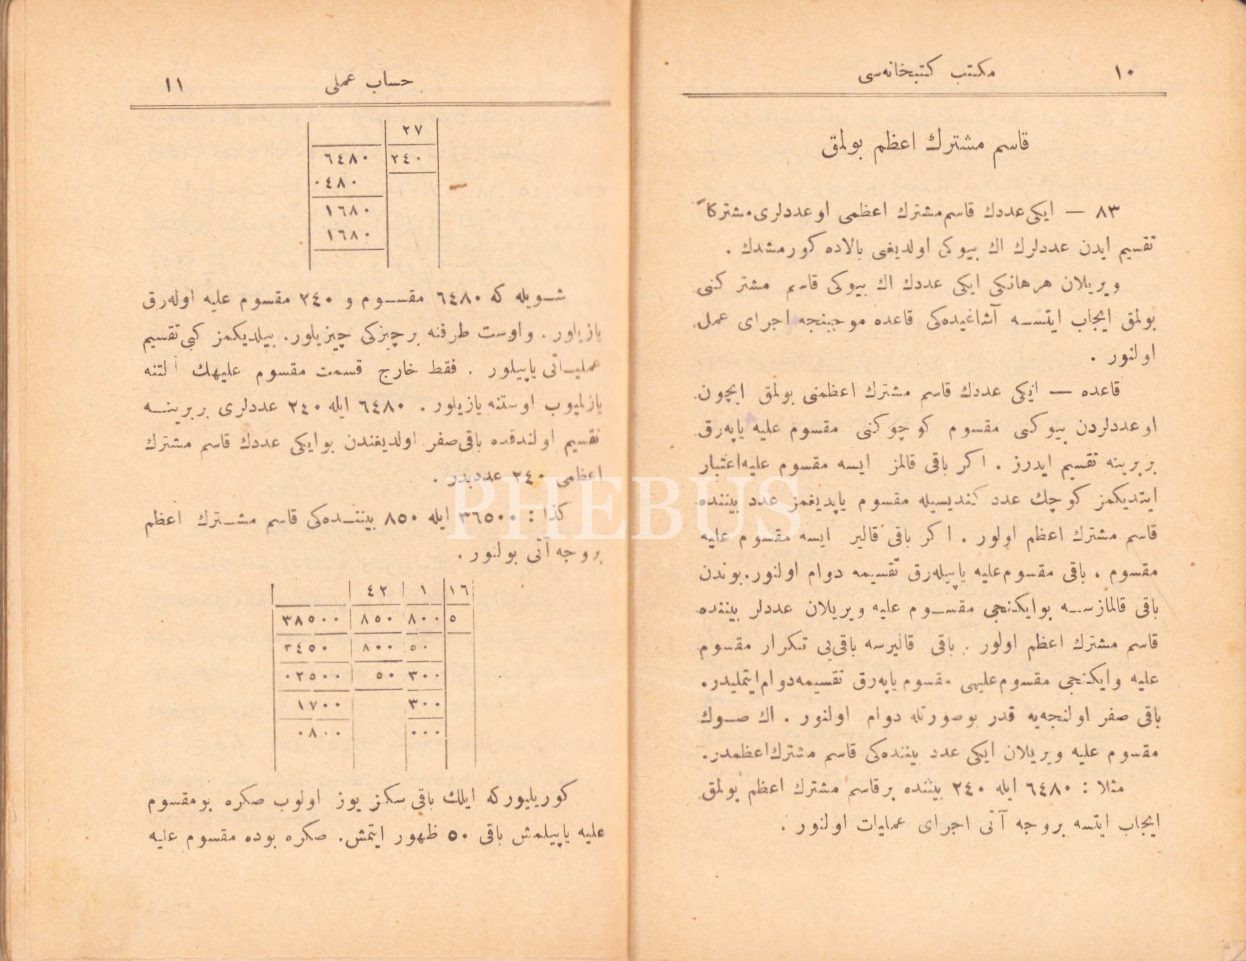 ١٠
مكتب كتبخانه‌سی
قاسم مشترك اعظم بولمق
٨٣ — ایكی عددك قاسم مشترك اعظمی او عددلری مشتركاً
تقسیم ایدن عددلرك اك بیوكی اولدیغی بالاده كورمشدك .
ویریلان هر هانكی ایكی عددك اك بیوكی قاسم مشتركنی
بولمق ایجاب ایتسه آشاغیده‌كی قاعده موجبنجه اجرای عمل
اولنور .
قاعده — ایكی عددك قاسم مشترك اعظمنی بولمق ایچون
او عددلردن بیوكنی مقسوم كوچوكنی مقسوم علیه یاپه‌رق
بربرینه تقسیم ایدرز . اكر باقی قالمز ایسه مقسوم علیه اعتبار
ایتدیكمز كوچك عدد كندیسیله مقسوم یاپدیغمز عدد بیننده
قاسم مشترك اعظم اولور . اكر باقی قالیر ایسه مقسوم علیه
مقسوم ، باقی مقسوم علیه یاپیله‌رق تقسیمه دوام اولنور. بوندن
باقی قالمازسه بو ایكنجی مقسوم علیه ویریلان عددلر بیننده
قاسم مشترك اعظم اولور . باقی قالیرسه باقی‌یی تكرار مقسوم
علیه و ایكنجی مقسوم علیهی مقسوم یاپه‌رق تقسیمه دوام ایتملیدر.
باقی صفر اولنجه‌یه قدر بو صورتله دوام اولنور . اك صوك
مقسوم علیه ویریلان ایكی عدد بیننده‌كی قاسم مشترك اعظمدر.
مثلا : ٦٤٨٠ ایله ٢٤٠ بیننده بر قاسم مشترك اعظم بولمق
ایجاب ایتسه بروجه آتی اجرای عملیات اولنور .
حساب عملی
١١
٢٧
٦٤٨٠ ٢٤٠
٠٤٨٠
١٦٨٠
١٦٨٠
شویله كه ٦٤٨٠ مقسوم و ٢٤٠ مقسوم علیه اوله‌رق
یازیلور . و اوست طرفنه بر چیزكی چیزیلور. بیلدیكمز كبی تقسیم
عملیاتی یاپیلور . فقط خارج قسمت مقسوم علیهك آلتنه
یازلمیوب اوستنه یازیلور . ٦٤٨٠ ایله ٢٤٠ عددلری بربرینه
تقسیم اولندقده باقی صفر اولدیغندن بو ایكی عددك قاسم مشترك
اعظمی ٢٤٠ عددیدر .
كذا : ٣٦٥٠٠ ایله ٨٥٠ بیننده‌كی قاسم مشترك اعظم
بروجه آتی بولنور .
٤٢ ١ ١٦
٣٨٥٠٠ ٨٥٠ ٨٠٠ ٥
٢٤٥٠ ٨٠٠ ٥٠
٠٢٥٠٠ ٥٠ ٣٠٠
١٧٠٠ ٣٠٠
٠٨٠٠ ٠٠٠
كوریلیور كه ایلك باقی سكز یوز اولوب صكره بو مقسوم
علیه یاپیلمش باقی ٥٠ ظهور ایتمش. صكره بوده مقسوم علیه
PHEBUS